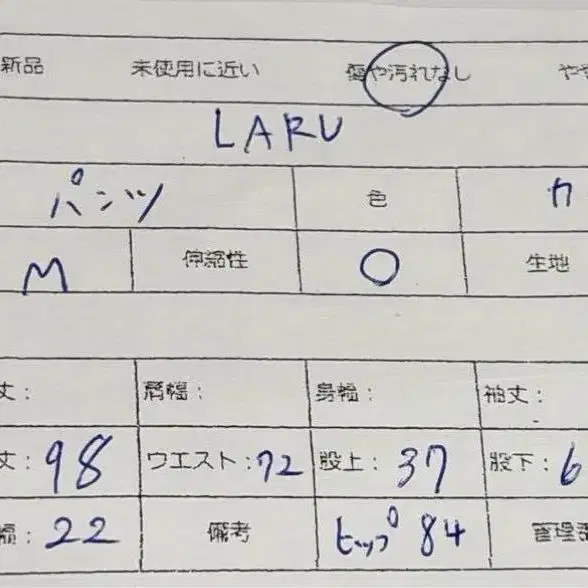 新品 未使用に近い 傷や汚れなし やや
LARU
パンツ 色 カ
M 伸縮性 ○ 生地
丈: 肩幅: 身幅: 袖丈:
丈: 98 ウエスト: 72 股上: 37 股下: 6
幅: 22 備考 ヒップ 84 管理